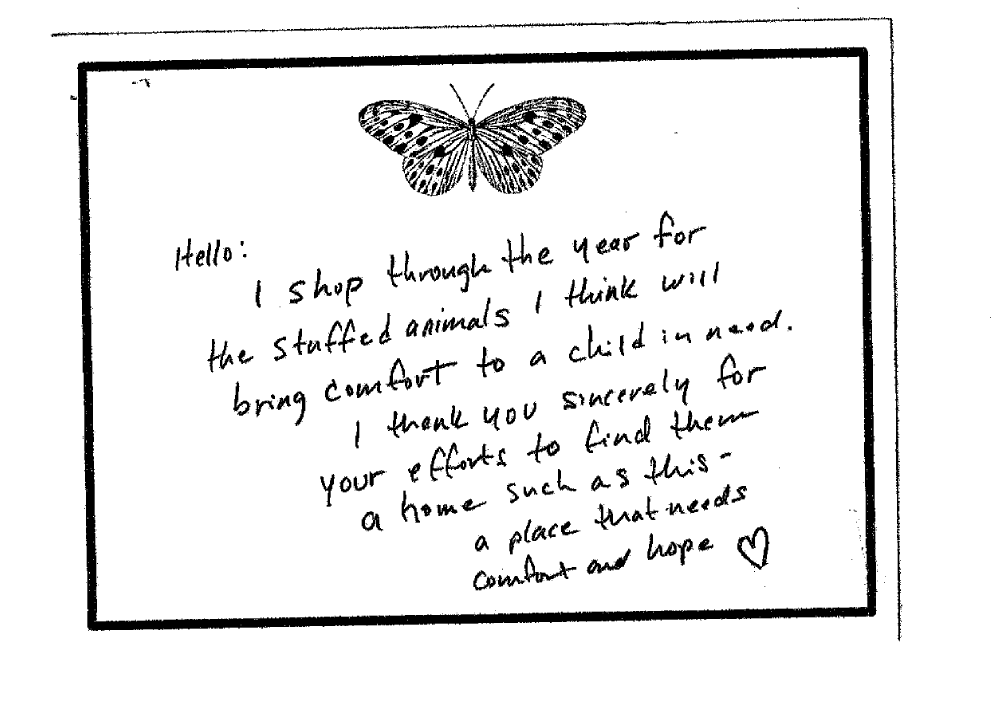 Hello:
I shop through the year for
the stuffed animals I think will
bring comfort to a child in need.
I thank you sincerely for
your efforts to find them
a home such as this -
a place that needs
comfort and hope ♡